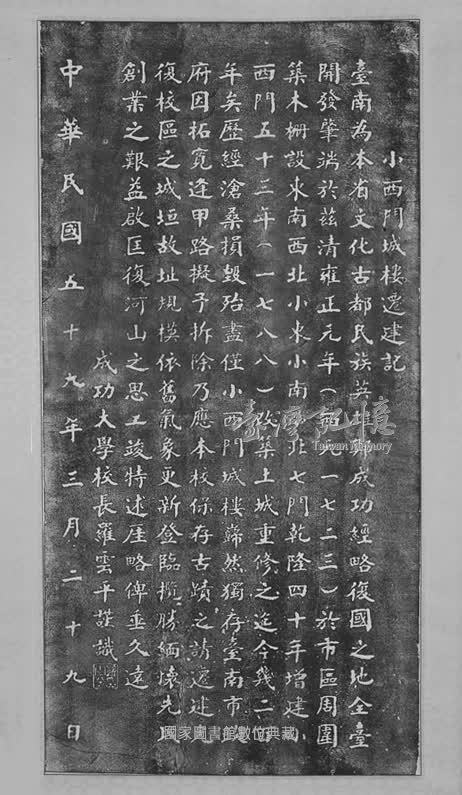 小西門城樓遷建記
臺南為本省文化古都民族英雄鄭成功經略復國之地全臺
開發肇端於茲清雍正元年(西元一七二三)於市區周圍
築木柵設東南西北小東小南小北七門乾隆四十年增建小
西門五十三年(一七八八)改築土城重修之迄今幾二百
年矣歷經滄桑損毀殆盡僅小西門城樓巋然獨存臺南市政
府因拓寬逢甲路擬予拆除乃應本校保存古蹟之請遷建
復校區之城垣故址規模依舊氣象更新登臨攬勝緬懷先民
創業之艱益啟匡復河山之思工竣特述厓略俾垂久遠
成功大學校長羅雲平謹識
中華民國五十九年三月二十九日
臺灣記憶
Taiwan Memory
國家圖書館數位典藏